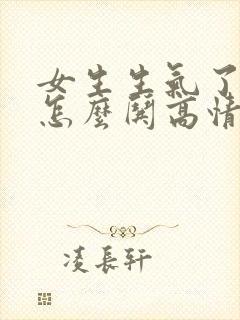 女生生氣了
怎麼鬨高情
凌長軒